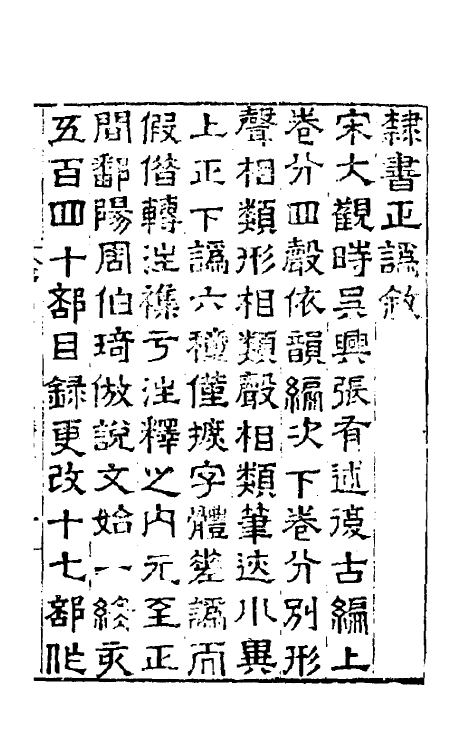 隸書正譌敘
宋大觀時吳興張有述復古編上
卷分四聲依韻編次下卷分別形
聲相類形相類聲相類筆迹小異
上正下譌六種僅據字體差譌而
假借轉注襍亏注釋之內元至正
間鄱陽周伯琦倣說文始一終亥
五百四十部目錄更改十七部作